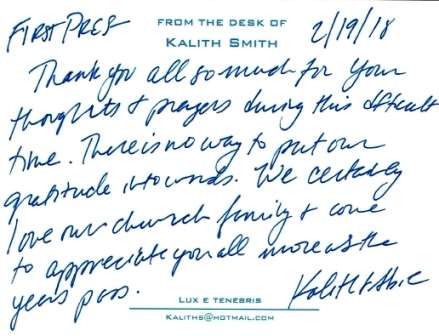 FIRST PRES
FROM THE DESK OF
KALITH SMITH
2/19/18
Thank you all so much for your
thoughts & prayers during this difficult
time. There is no way to put our
gratitude into words. We certainly
love our church family & come
to appreciate you all more as the
years pass.
Kalith &
LUX E TENEBRIS
KALITHS@HOTMAIL.COM